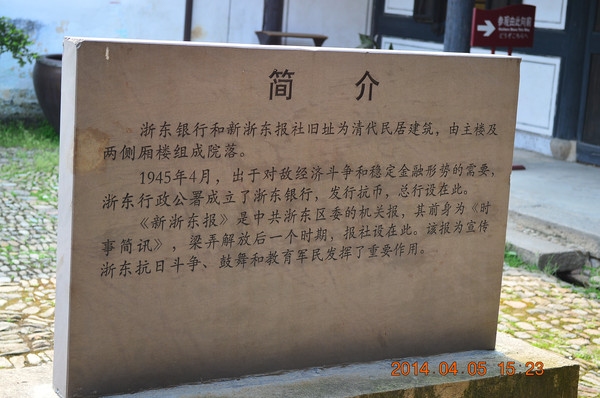 参观由此向前
どうぞこちらへ
简 介
浙东银行和新浙东报社旧址为清代民居建筑，由主楼及
两侧厢楼组成院落。
1945年4月，出于对敌经济斗争和稳定金融形势的需要，
浙东行政公署成立了浙东银行，发行抗币，总行设在此。
《新浙东报》是中共浙东区委的机关报，其前身为《时
事简讯》，梁弄解放后一个时期，报社设在此。该报为宣传
浙东抗日斗争、鼓舞和教育军民发挥了重要作用。
2014.04.05 15:23